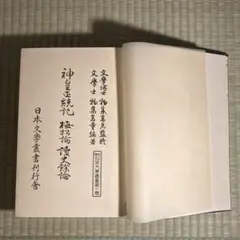 文學博士 物集高見監修
文學士 物集高量編著
神皇正統記 梅松論 讀史餘論
日本文學叢書刊行會